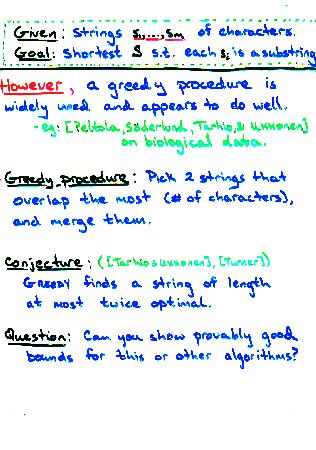 Given: Strings s₁,...,sₘ of characters.
Goal: Shortest S s.t. each sᵢ is a substring
However, a greedy procedure is
widely used and appears to do well.
- eg: [Peltola, Söderlund, Tarhio, & Ukkonen]
on biological data.
Greedy procedure: Pick 2 strings that
overlap the most (# of characters),
and merge them.
Conjecture: ([Tarhio & Ukkonen], [Turner])
GREEDY finds a string of length
at most twice optimal.
Question: Can you show provably good
bounds for this or other algorithms?